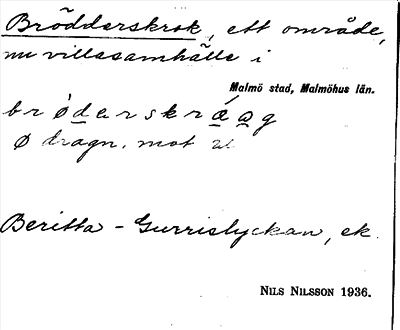 Brödderskrok, ett område,
nu villasamhälle i
Malmö stad, Malmöhus län.
brødarskrá̱a̱g
ø dragn. mot
Beritta - Gurrislyckan, ek.
NILS NILSSON 1936.